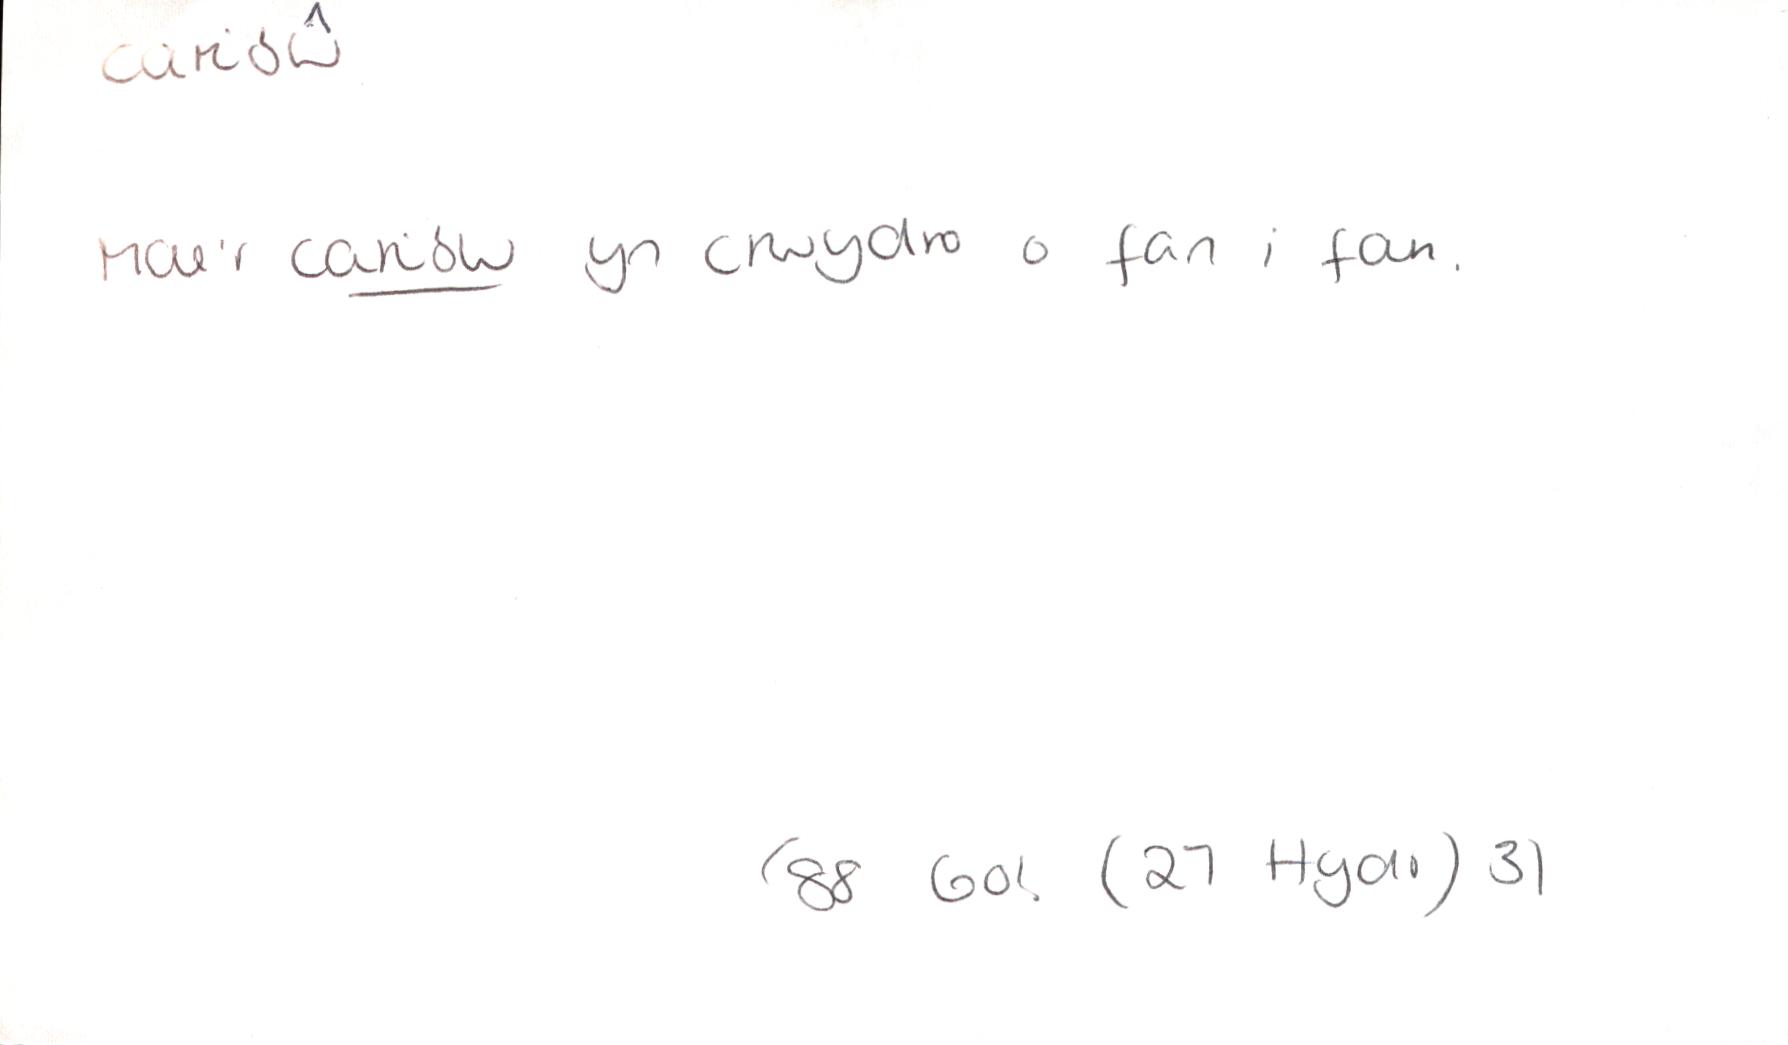 caribŵ
Mae'r caribw yn crwydro o fan i fan.
'88 Gol. (27 Hydr) 31